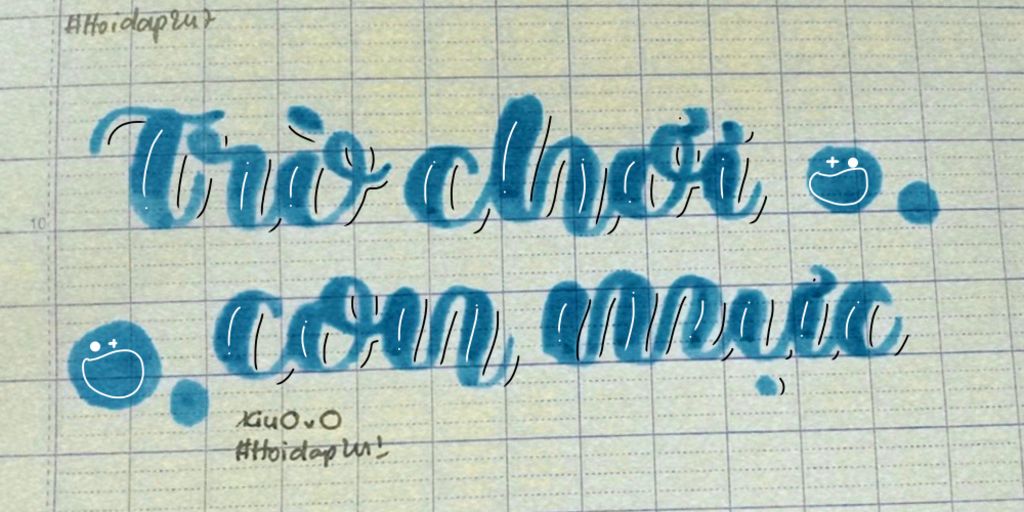 #Hoidap247
Trò chơi
10
con mực
#Hoidap247